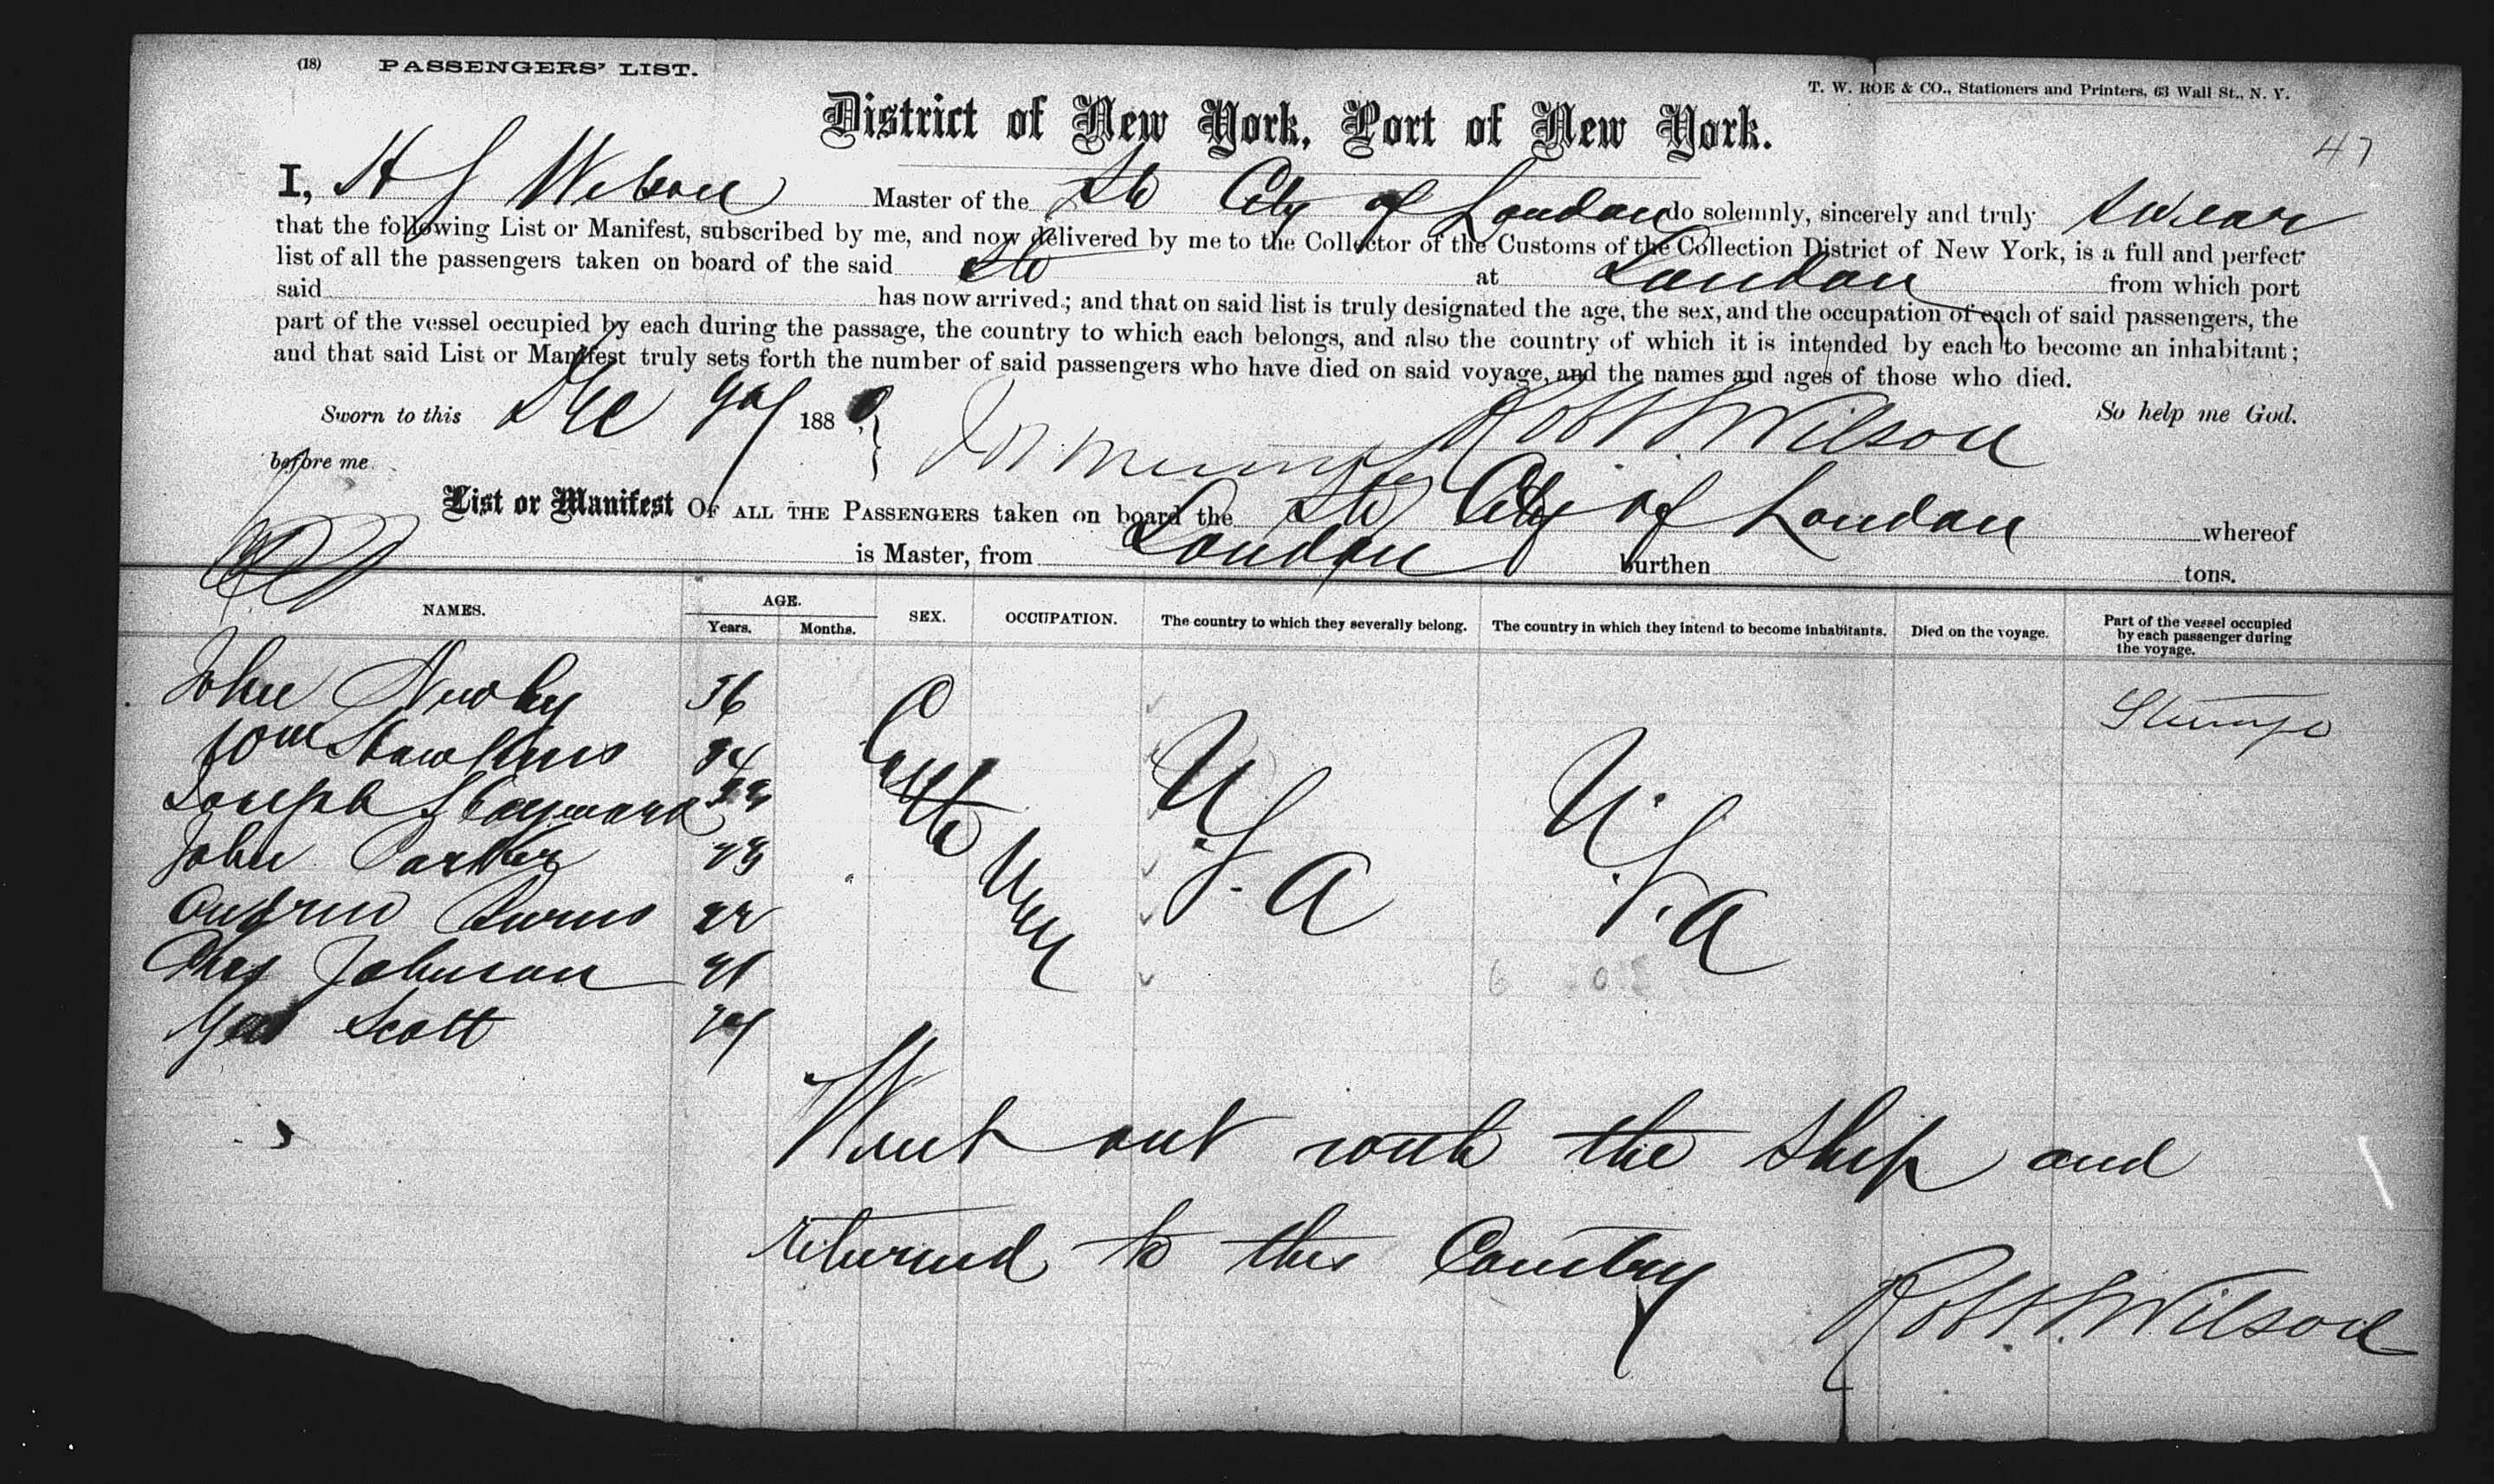 (18) PASSENGERS' LIST.
T. W. ROE & CO., Stationers and Printers, 63 Wall St., N. Y.
District of New York, Port of New York.
47
I, H S Wilson Master of the City of London do solemnly, sincerely and truly swear
that the following List or Manifest, subscribed by me, and now delivered by me to the Collector of the Customs of the Collection District of New York, is a full and perfect
list of all the passengers taken on board of the said at London from which port
said has now arrived; and that on said list is truly designated the age, the sex, and the occupation of each of said passengers, the
part of the vessel occupied by each during the passage, the country to which each belongs, and also the country of which it is intended by each to become an inhabitant;
and that said List or Manifest truly sets forth the number of said passengers who have died on said voyage, and the names and ages of those who died.
Sworn to this Dec 188 Robt S. Wilson So help me God.
before me
List or Manifest OF ALL THE PASSENGERS taken on board the City of London whereof
is Master, from London burthen tons.
NAMES. AGE. Years. Months. SEX. OCCUPATION. The country to which they severally belong. The country in which they intend to become inhabitants. Died on the voyage. Part of the vessel occupied by each passenger during the voyage.
John Newby 36
Wm Hawkins 34
Joseph Hayward
John Carter
Andrew Burns
Chas Johnson
Geo Scott
Cattle Men
U.S.A
U.S.A
Went out with the ship and
returned to this Country
Robt S. Wilson